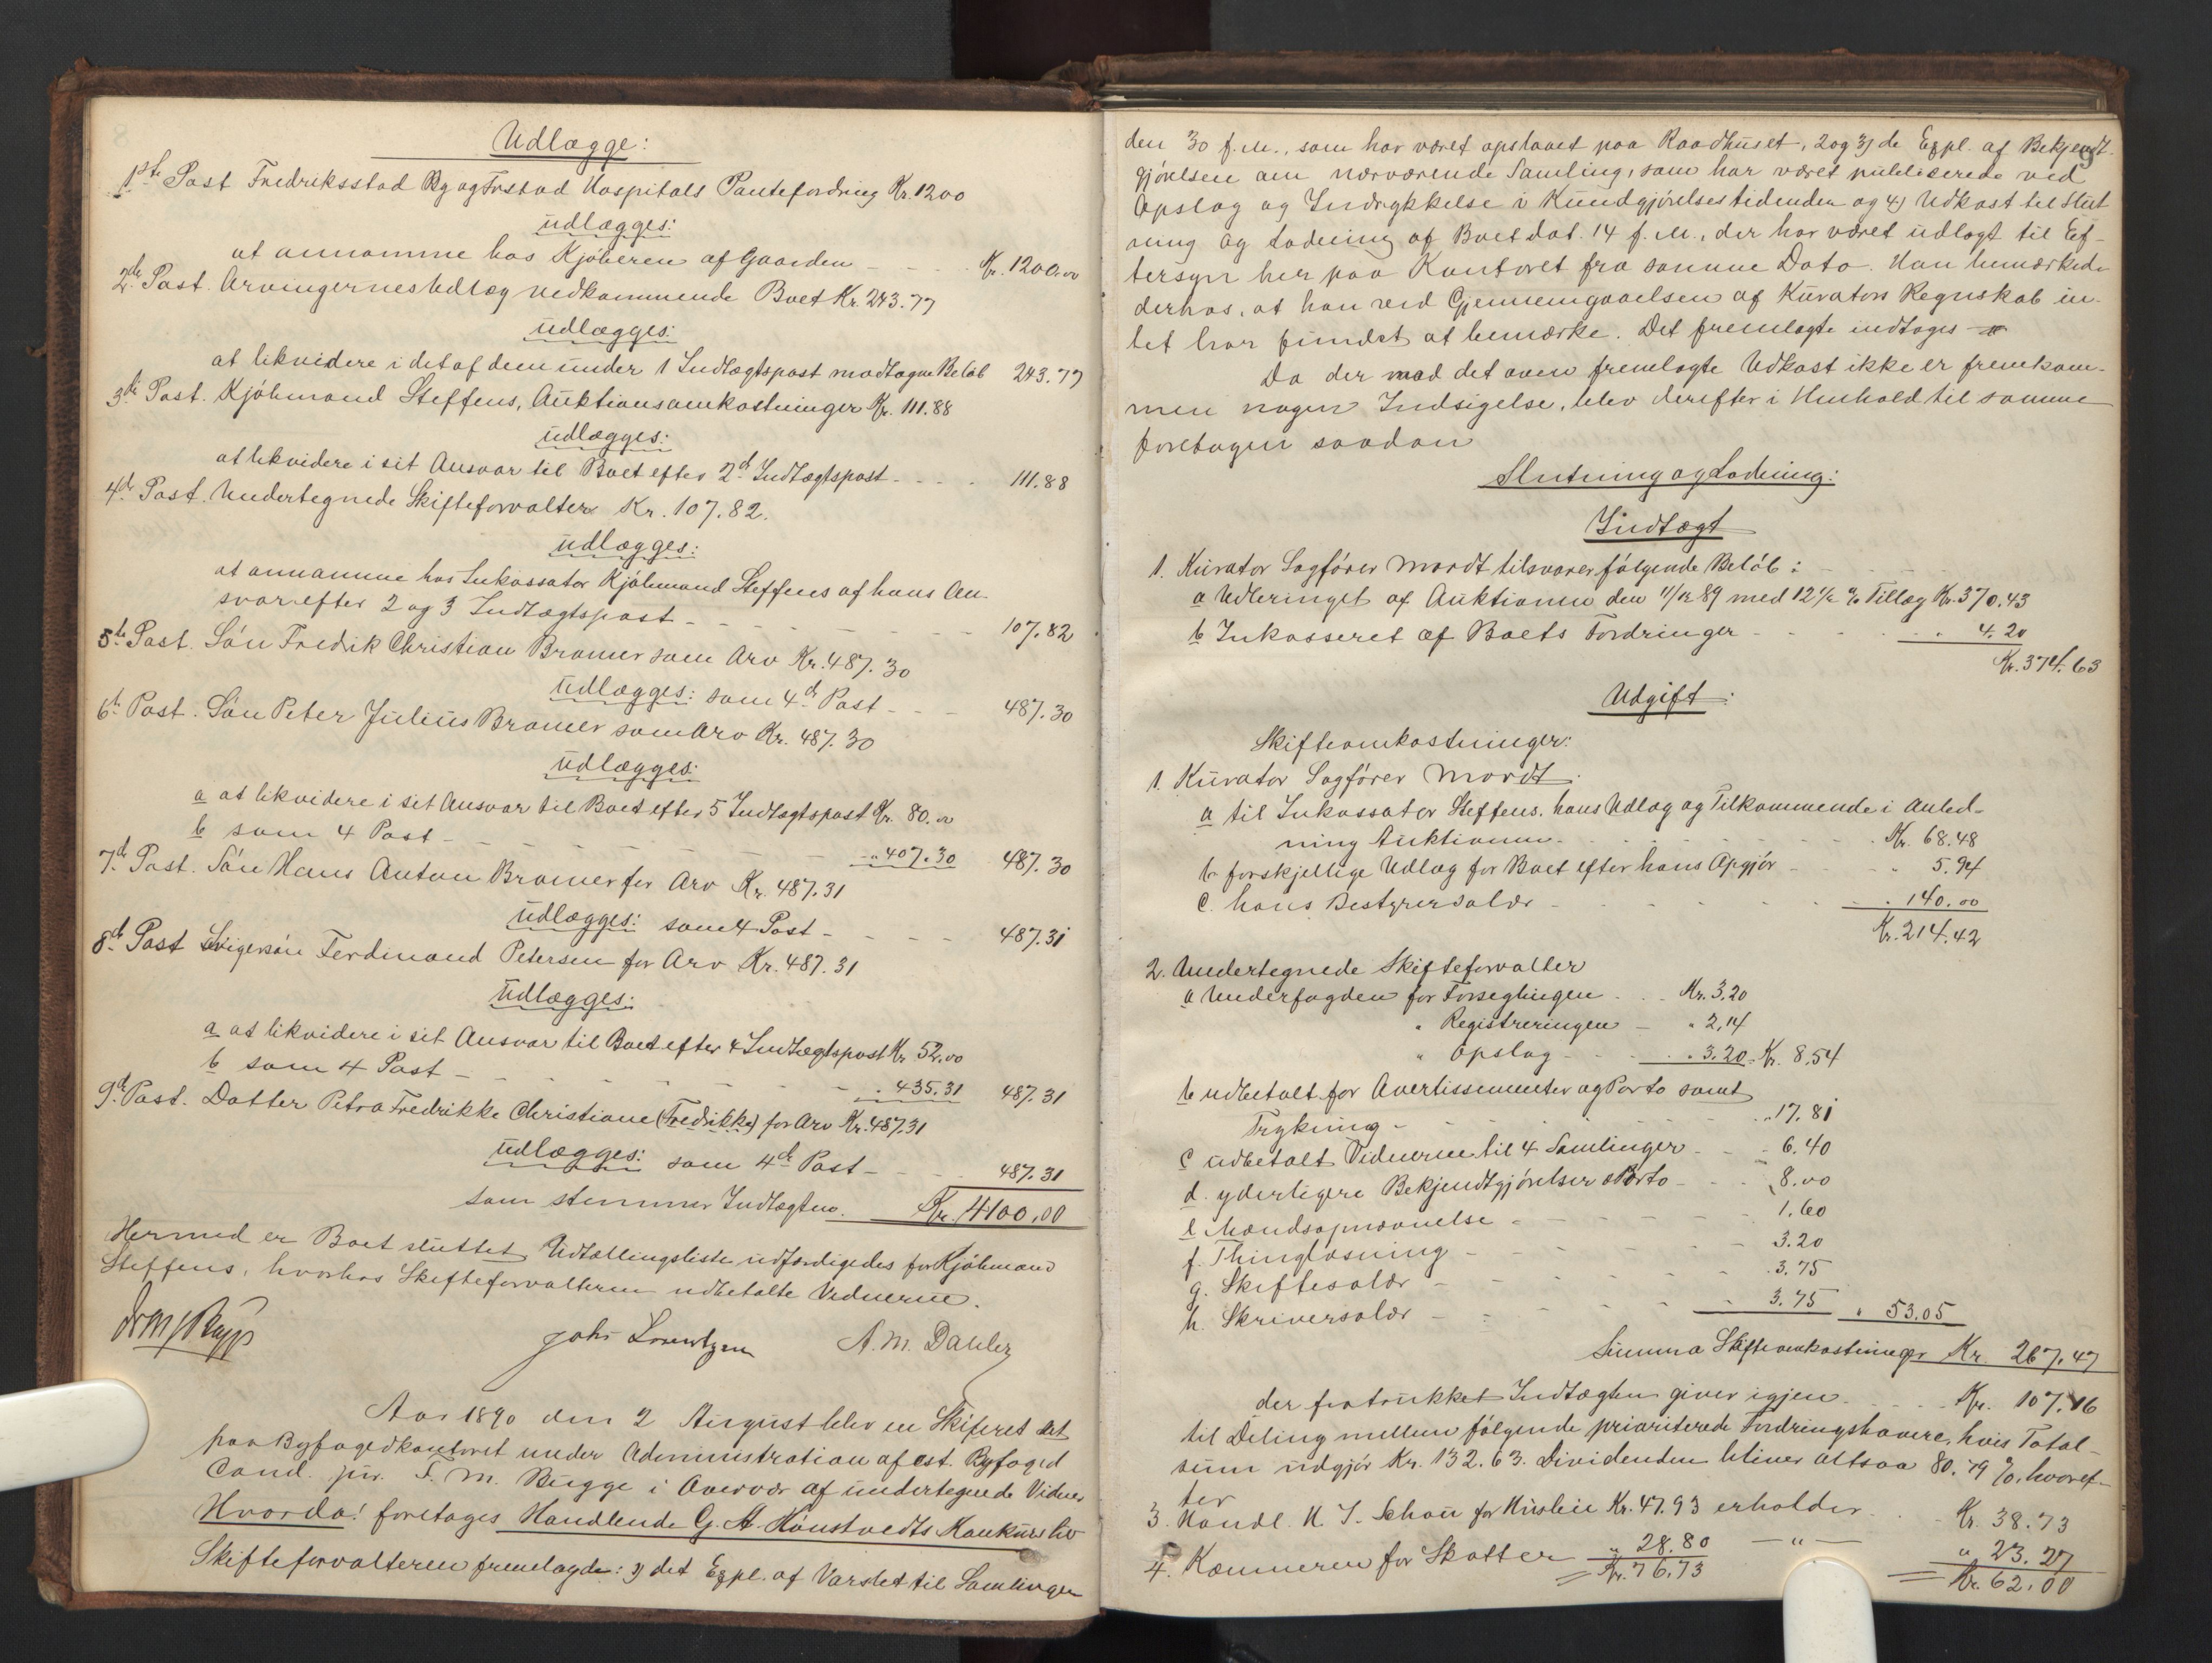 Udlægge:
1ste Post Fredriksstad By og Forstad Hospitals Pantefordring Kr. 1200
udlægges:
at annamme hos Kjøberen af Gaarden - - - - Kr. 1200.00
2de Post. Arvingernes Udlæg vedkommende Boet Kr. 243.77
udlægges:
at likvidere i det af dem under 1 Indtægtspost modtagne Beløb 243.77
3de Post. Kjøbmand Steffens, Auktionsomkostninger Kr. 111.88
udlægges:
at likvidere i sit Ansvar til Boet efter 2d Indtægtspost - - - - 111.88
4de Post. Undertegnede Skifteforvalter Kr. 107.82.
udlægges:
at annamme hos Inkassator Kjøbmand Steffens af hans An-
svar efter 2 og 3 Indtægtspost - - - - - - - - 107.82
5te Post. Søn Fredrik Christian Bramer som Arv Kr. 487.30
udlægges: som 4de Post - - 487.30
6te Post. Søn Peter Julius Bramer som Arv Kr. 487.30
udlægges:
a at likvidere i sit Ansvar til Boet efter 5 Indtægtspost Kr. 80.00
b som 4 Post - - - - - - - - " 407.30 487.30
7de Post. Søn Hans Anton Bramer for Arv Kr. 487.31
udlægges: som 4 Post - - - - 487.31
8de Post Svigersøn Ferdinand Petersen for Arv Kr. 487.31
udlægges:
a at likvidere i sit Ansvar til Boet efter 4 Indtægtspost Kr. 52.00
b som 4 Post - - - - - - - - " 435.31 487.31
9de Post. Datter Petra Fredrikke Christiane (Fredrikke) for Arv Kr. 487.31
udlægges: som 4de Post - - - 487.31
som stemmer Indtægten. Kr. 4100.00
Hermed er Boet sluttet Udtællingsliste udfærdigedes for Kjøbmand
Steffens, hvorhos Skifteforvalteren udbetalte Vidnerne.
Joh. Lorentzen A. M. Dahler
Aar 1890 den 2 August blev en Skifteret sat
paa Byfogedkontoret under Administration af cst. Byfoged
Cand. jur. F. M. Bugge i Overvær af undertegnede Vidner
Hvorda! foretages Handlende G. A. Hønstvedts Konkursbo
Skifteforvalteren fremlagde: 1) det Expl. af Varslet til Samlingen
den 30 f. M., som har været opslaaet paa Raadhuset, 2 og 3) de Expl. af Bekjendt-
gjørelsen om nærværende Samling, som har været publicerede ved
Opslag og Indrykkelse i Kundgjørelsestidenden og 4) Udkast til Slut
ning og Lodning af Boet dat. 14 f. M., der har været udlagt til Ef-
tersyn her paa Kontoret fra samme Dato. Han bemærkede
derhos, at han ved Gjennemgaaelsen af Kurators Regnskab in-
tet har fundet at bemærke. Det fremlagte indtages -
Da der mod det oven fremlagte Udkast ikke er fremkom-
men nogen Indsigelse, blev derefter i Henhold til samme
foretagen saadan
Slutning og Lodning:
Indtægt
1. Kurator Sagfører Mordt tilsvarer følgende Beløb:
a Udbringet af Auktionen den 11/12 89 med 12 1/2 % Tillæg Kr. 370.43
b Inkasseret af Boets Fordringer - - - - " 4.20
Kr. 374.63
Udgift:
Skifteomkostninger:
1. Kurator Sagfører Mordt.
a til Inkassator Steffens, hans Udlæg og Tilkommende i Anled-
ning Auktionen - - - - - - Kr. 68.48
b forskjellige Udlæg for Boet efter hans Opgjør - - " 5.94
c. hans Bestyrersalær - - - - - - " 140.00
Kr. 214.42
2. Undertegnede Skifteforvalter
a Underfogden for Forseglingen - - Kr. 3.20
" Registreringen - " 2.14
" Opslag - - - " 3.20 Kr. 8.54
b udbetalt for Avertissementer og Porto samt
Trykning - - - - - - " 17.81
c udbetalt Vidnerne til 4 Samlinger - - " 6.40
d. yderligere Bekjendtgjørelser & Porto - - - 8.00
e Mandsopnævnelse - - - - - 1.60
f. Thinglæsning - - - - - - 3.20
g. Skiftesalær - - - - - - 3.75
h. Skriversalær - - - - - - 3.75 " 53.05
Summa Skifteomkostninger Kr. 267.47
der fratrukket Indtægten giver igjen - - - - Kr. 107.16
til Deling mellem følgende prioriterede Fordringshavere, hvis Total-
sum udgjør Kr. 132.63. Dividenden bliver altsaa 80.79 %, hvoref-
ter
3. Handl. H. J. Schou for Husleie Kr. 47.93 erholder - - Kr. 38.73
4. Kæmneren for Skatter " 28.80 — " — " 23.27
Kr. 76.73 Kr. 62.00